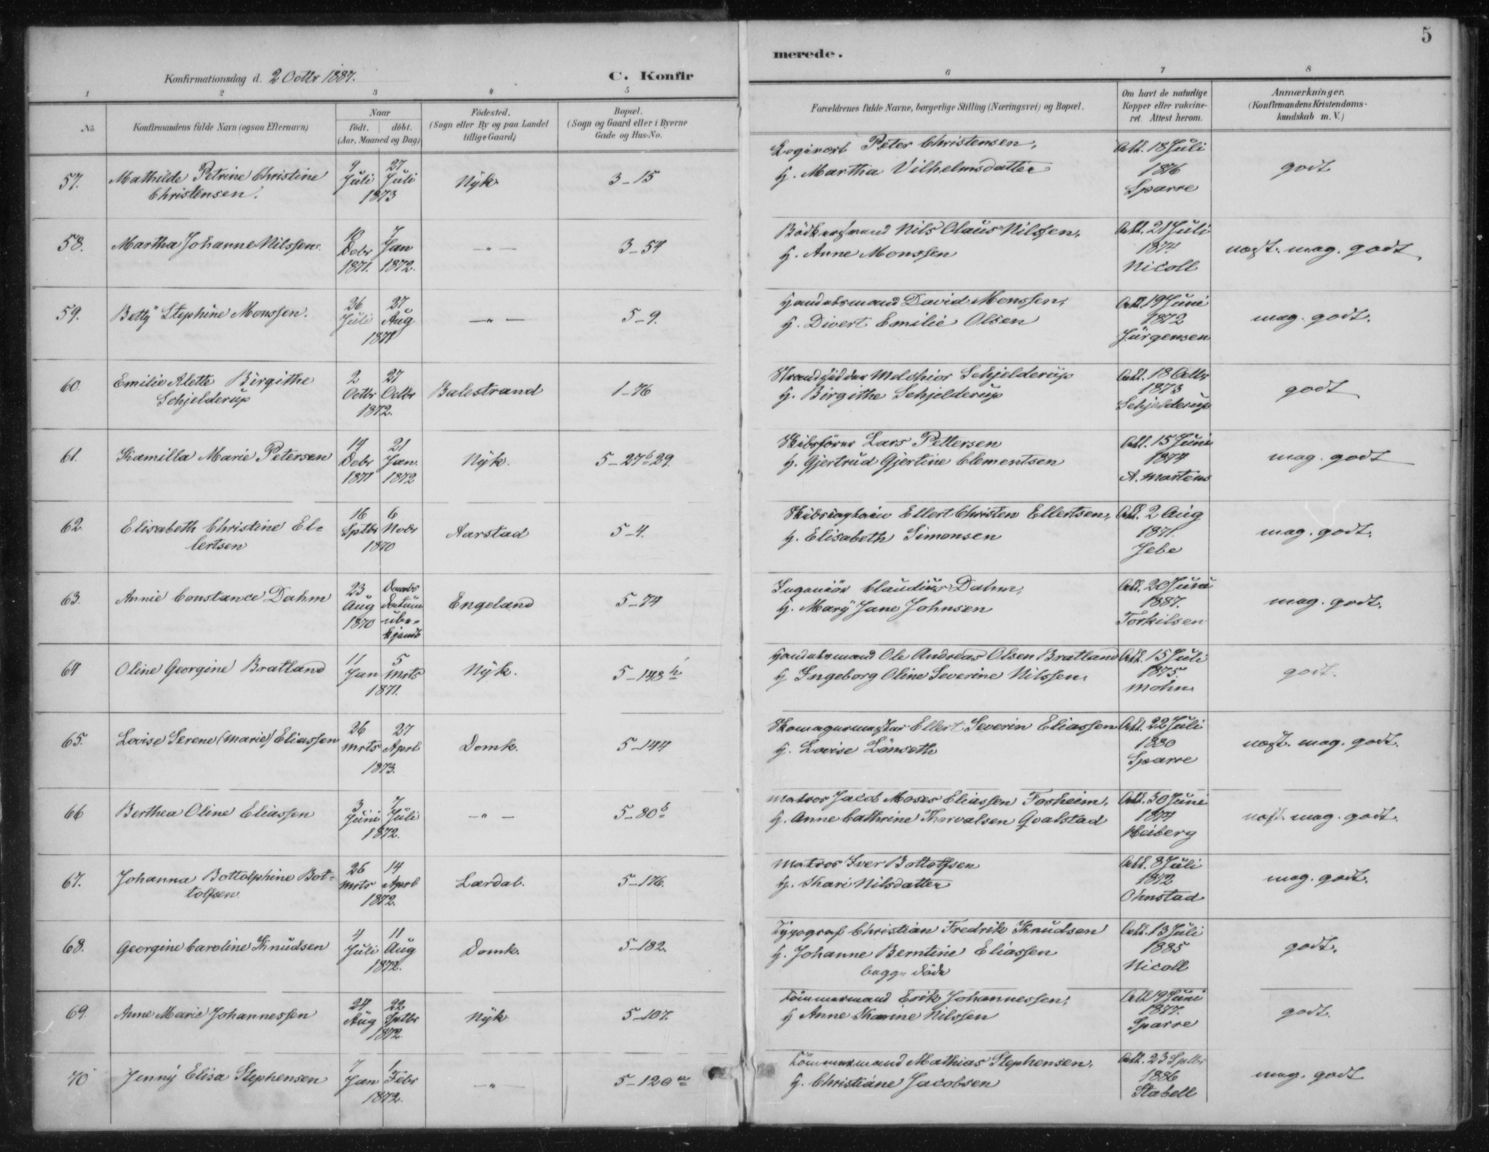 5
Konfirmationsdag d. 2 Octbr 1887.
C. Konfir
merede.
1 2 3 4 5 6 7 8
No
Konfirmandens fulde Navn (ogsaa Efternavn)
Naar
født. døbt.
(Aar, Maaned og Dag)
Fødested.
(Sogn eller By og paa Landet
tillige Gaard)
Bopæl.
(Sogn og Gaard eller i Byerne
Gade og Hus-No.
Forældrenes fulde Navne, borgerlige Stilling (Næringsvei) og Bopæl.
Om havt de naturlige
Kopper eller vaccine-
ret. Attest herom.
Anmærkninger.
(Konfirmandens Kristendoms-
kundskab m. V.)
57. Mathilde Petrine Christine
Christensen.
2 Juli 27 Juli
1873
Nyk. 3-15
Logivært Peter Christensen,
H. Martha Vilhelmsdatter
Att. 18 Juli
1876
Sparre
godt
58. Martha Johanne Nilssen.
10 Decbr 1871. 7 Jan 1872.
-"- 3-54
Nils Olaus Nilssen,
H. Anne Monssen
Att. 21 Juli
1874
Nicoll
næst. mag. godt.
59. Betty Stephine Monssen.
26 Juli 27 Aug
1871
-"- 5-9.
Handelsmand David Monssen,
H. Divert Emilie Olsen
Att 19 Juni
1872
Jürgensen
mag. godt.
60. Emilie Alette Birgithe
Schjelderup
2 Octbr 27 Octbr
1872.
Balestrand 1-76
Melchior Schjelderup
H. Birgithe Schjelderup
Att. 18 Octbr
1873
Schjelderup
godt
61. Kamilla Marie Petersen
14 Decbr 1871 21 Jan. 1872
Nyk. 5-27 b 29.
Skibsfører Lars Pettersen
H. Gjertrud Gjertine Clementsen
Att. 15 Juni
1874
A. Martens
mag. godt
62. Elisabeth Christine El-
lertsen
16 Sptbr 6 Novbr
1870
Aarstad 5-4.
Ellert Christen Ellertsen,
H. Elisabeth Simonsen
Att. 2 Aug
1871.
Jebe
mag. godt.
63. Annie Constance Dahm
23 Aug 1870
Datum
ube-
kjendt
Engeland 5-74
Ingeniør Claudius Dahm,
H. Mary Jane Johnsen
Att. 20 Juni
1887.
Torkilsen
mag. godt.
64 Oline Georgine Bratland
11 Jan 5 Mrts
1871.
Nyk. 5-143 h
Handelsmand Ole Andreas Olsen Bratland
H. Ingeborg Oline Severine Nilssen.
Att. 15 Juli
1875.
Mohn
godt.
65. Lovise Serene (Marie) Eliassen
26 Mrts 27 Aprl
1873.
Domk. 5-144
Skomagermester Ellert Severin Eliassen
H. Lovise Lönseth
Att. 22 Juli
1880
Sparre
næst. mag. godt.
66 Berthea Oline Eliassen
3 Juni 7 Juli
1872.
-"- 5-80 b
Matros Jacob Moses Eliassen Forsheim,
H. Anne Cathrine Thorvalsen Qvalstad
Att. 30 Juni
1874
Heiberg
næst. mag. godt.
67. Johanna Bottolphine Bot-
tolfsen
26 Mrts 14 Aprl
1872.
Lærdal. 5-176.
Matros Iver Bottolfsen
H. Kari Nilsdatter
Att. 8 Juli
1872
Ohnstad
mag. godt.
68. Georgine Caroline Knudsen
4 Juli 11 Aug
1872.
Domk. 5-182.
Typograf Christian Fredrik Knudsen
H. Johanne Berntine Eliassen
begge døde
Att. 13 Juli
1885
Nicoll
godt.
69. Anne Marie Johannessen
24 Aug 22 Sptbr
1872
Nyk 5-107.
Tömmermand Erik Johannessen,
H Anne Nilssen
Att 19 Juni
1877.
Sparre
godt.
70 Jenny Elisa Stephensen
7 Jan 1 Febr
1872.
-"- 5-120 a
Tömmermand Mathias Stephensen,
H. Christiane Jacobsen
Att. 23 Sptbr
1886
Stabell
mag. godt